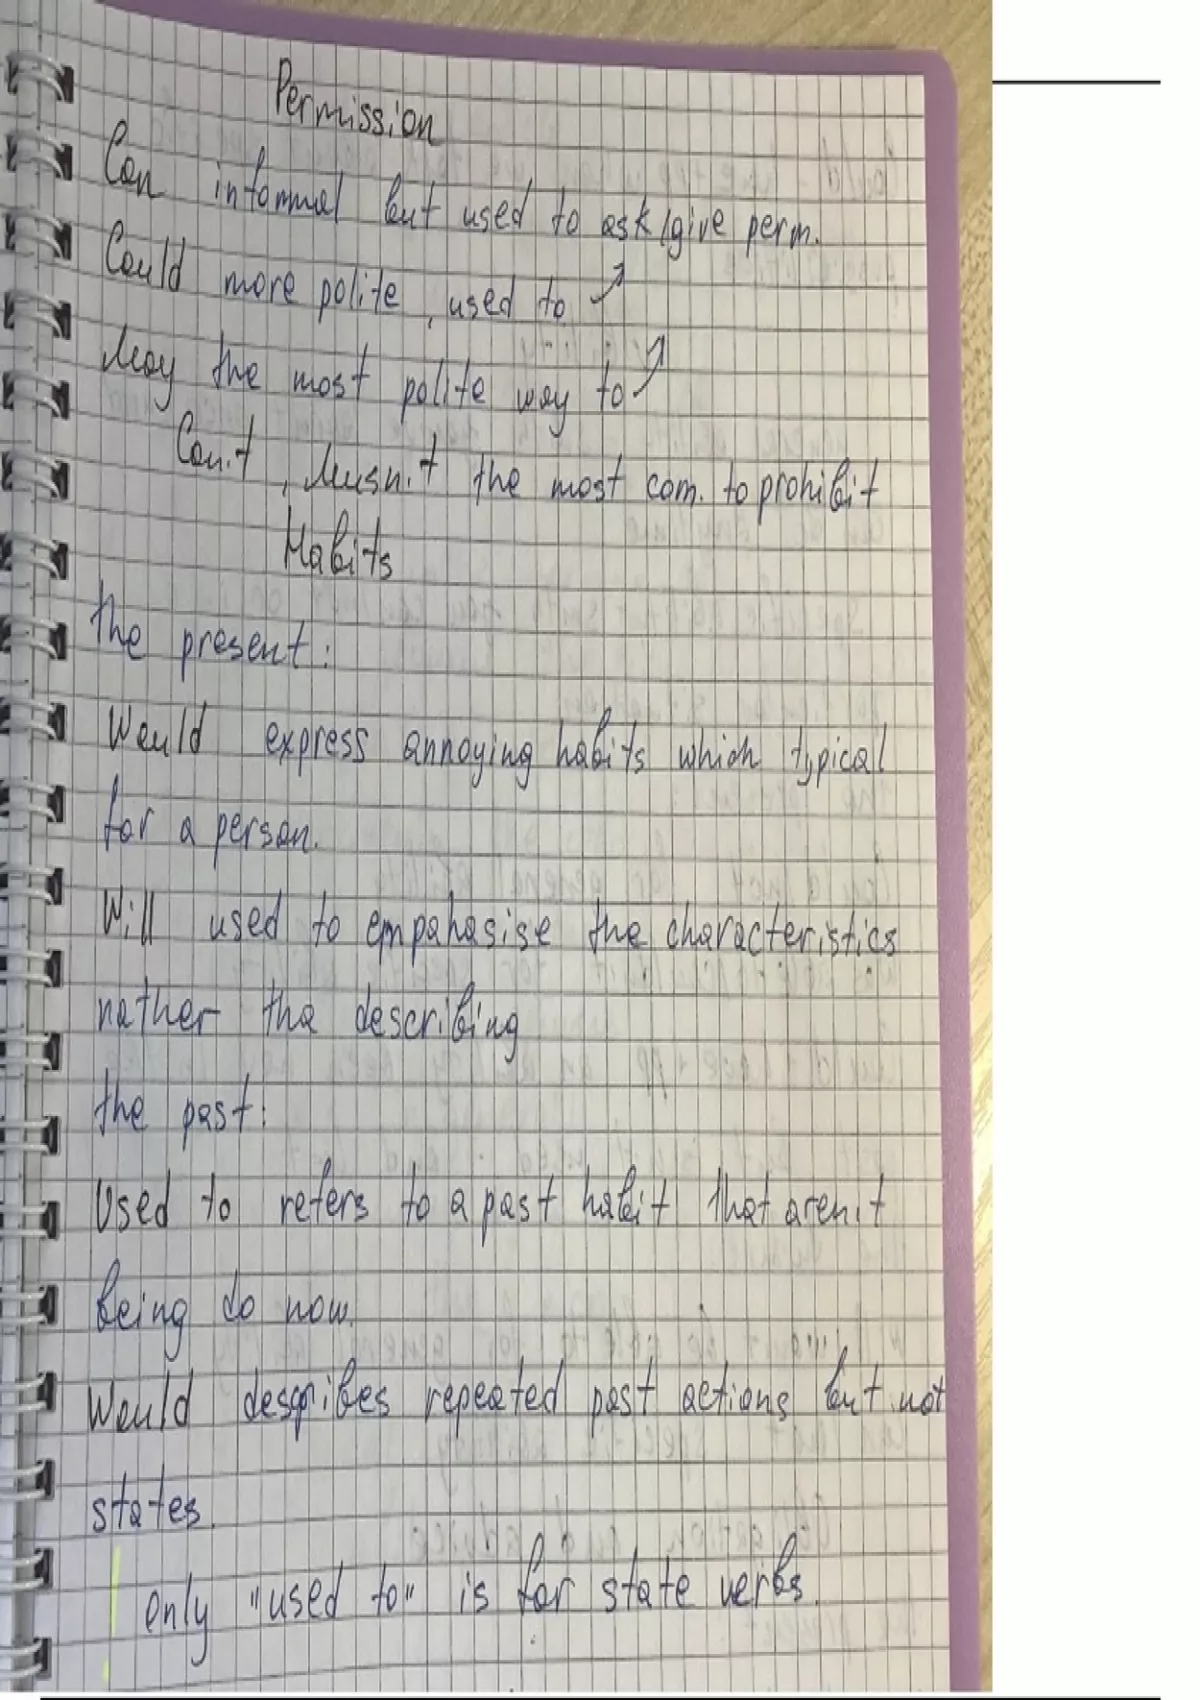 Permission
Can informal but used to ask/give perm.
Could more polite, used to ↗
May the most polite way to ↗
Can't, Musn't the most com. to prohibit
Habits
the present:
Would express annoying habits which typical
for a person.
Will used to empahasise the characteristics
rather tha describing
the past:
Used to refers to a past habit that aren't
being do now.
Would describes repeated past actions but not
states.
only "used to" is for state verbs.